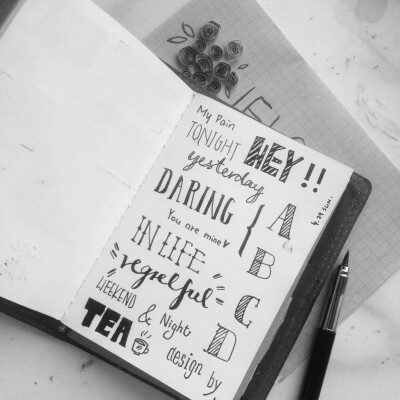 My Pain
TONIGHT HEY!!
yesterday
DARING
You are mine
IN LIFE
regretful
WEEKEND
TEA & Night
design by
{ A
B
C
D
4.29 SUN.